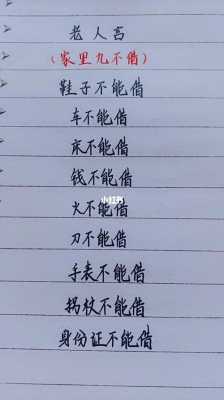 老人言
(家里九不借)
鞋子不能借
车不能借
床不能借
钱不能借
火不能借
小红书
刀不能借
手表不能借
拐杖不能借
身份证不能借